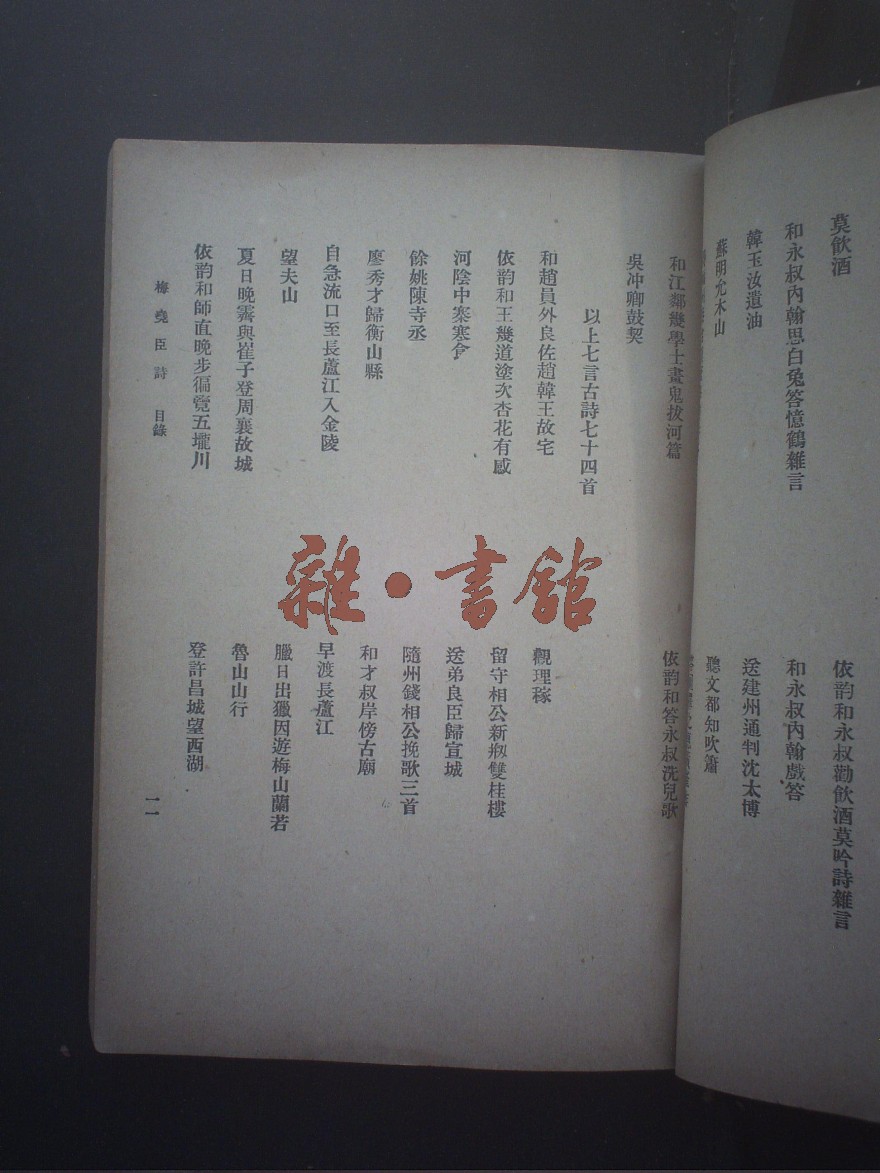 莫飮酒
依韵和永叔勸飮酒莫吟詩雜言
和永叔內翰思白兔答憶鶴雜言
和永叔內翰戲答
韓玉汝遺油
送建州通判沈太博
蘇明允木山
聽文都知吹簫
和江鄰幾學士畫鬼拔河篇
依韵和答永叔洗兒歌
吳冲卿鼓契
以上七言古詩七十四首
和趙員外良佐趙韓王故宅
觀理稼
依韵和王幾道塗次杏花有感
留守相公新剏雙桂樓
河陰中寨寒食
送弟良臣歸宣城
餘姚陳寺丞
隨州錢相公挽歌三首
廖秀才歸衡山縣
和才叔岸傍古廟
自急流口至長蘆江入金陵
早渡長蘆江
望夫山
臘日出獵因遊梅山蘭若
夏日晚霽與崔子登周襄故城
魯山山行
依韵和師直晚步徧覽五壠川
登許昌城望西湖
梅堯臣詩 目錄
一一
雜·書館